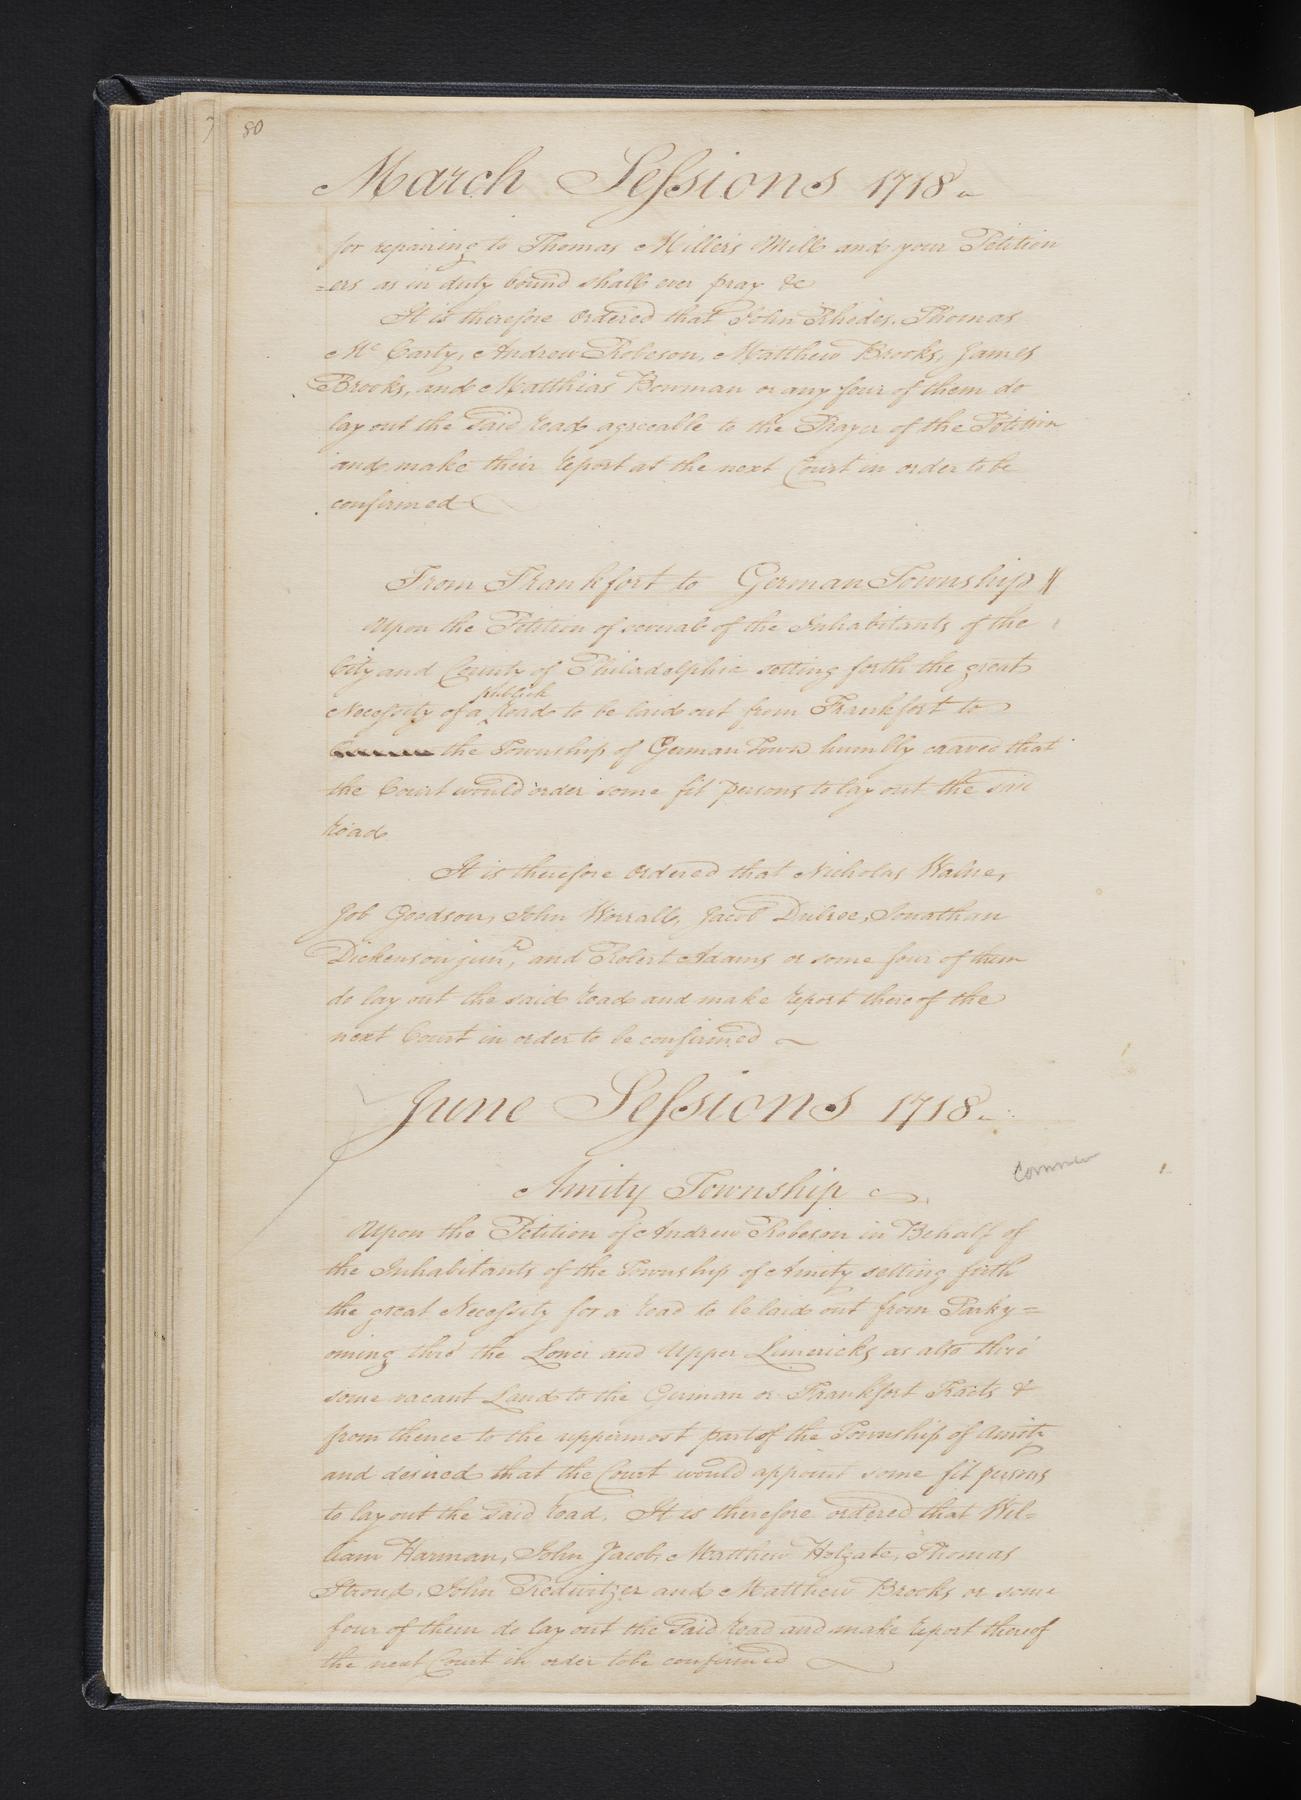 80
March Sessions 1718
for repairing to Thomas Miller's Mill and your Petition
=ers as in duty bound shall ever pray &c
It is therefore Ordered that John Rhodes, Thomas
Mc Carty, Andrew Robeson, Matthew Brooks, James
Brooks, and Matthias Bowman or any four of them do
lay out the said Road agreeable to the Prayer of the Petition
and make their report at the next Court in order to be
confirmed
From Frankfort to German Township
Upon the Petition of several of the Inhabitants of the
City and County of Philadelphia setting forth the great
publick
Necessity of a Road to be laid out from Frankfort to
the Township of German Town humbly craved that
the Court would order some fit persons to lay out the said
Road
It is therefore Ordered that Nicholas Walne,
Job Goodson, John Worrall, Jacob Dubree, Jonathan
Dickenson junr, and Robert Adams or some four of them
do lay out the said Road and make report thereof the
next Court in order to be confirmed
June Sessions 1718
Commen
Amity Township
Upon the Petition of Andrew Robeson in Behalf of
the Inhabitants of the Township of Amity setting forth
the great Necessity for a Road to be laid out from Parky=
oming thro' the Lower and Upper Limericks as also thro'
some vacant Land to the German or Frankfort Tracts &
from thence to the uppermost part of the Township of Amity
and desired that the Court would appoint some fit persons
to lay out the said Road. It is therefore ordered that Wil=
liam Harman, John Jacob, Matthew Holgate, Thomas
Stroud, John Tredwitzer and Matthew Brooks or some
four of them do lay out the Said Road and make report thereof
the next Court in order to be confirmed